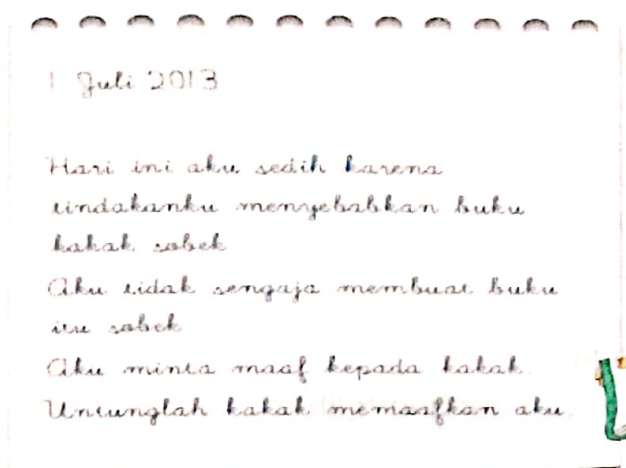 1 Juli 2013
Hari ini aku sedih karena
tindakanku menyebabkan buku
kakak sobek
Aku tidak sengaja membuat buku
itu sobek
Aku minta maaf kepada kakak.
Untunglah kakak memaafkan aku.